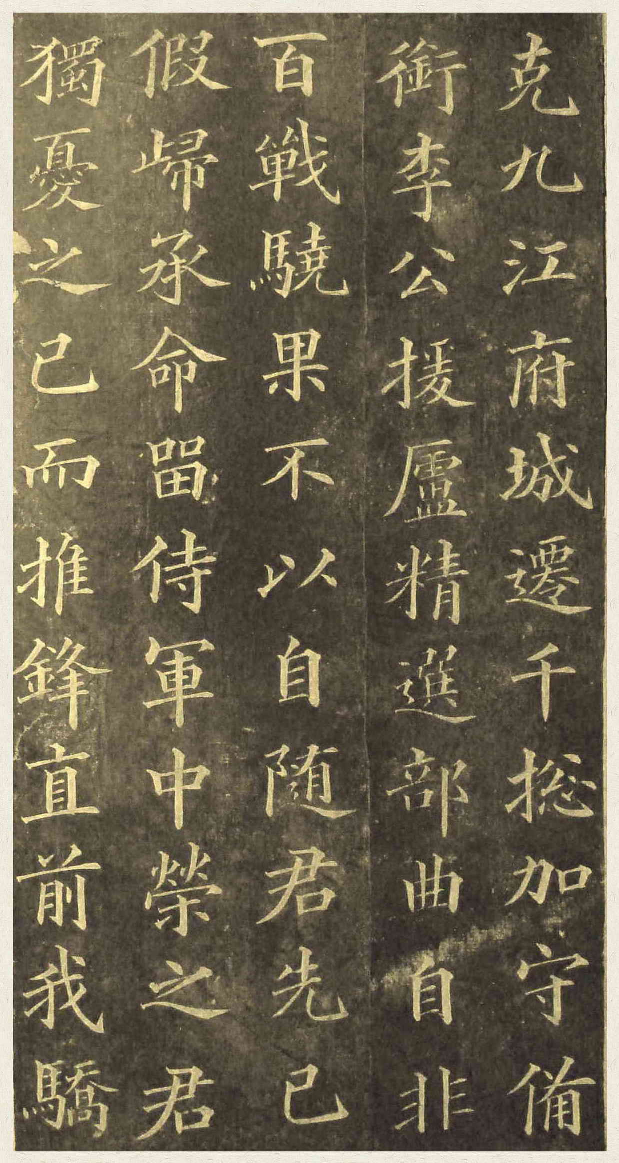 克九江府城遷千揔加守備
銜李公援廬精選部曲自非
百戰驍果不以自随君先已
假歸承命留侍軍中榮之君
獨憂之已而推鋒直前我驕